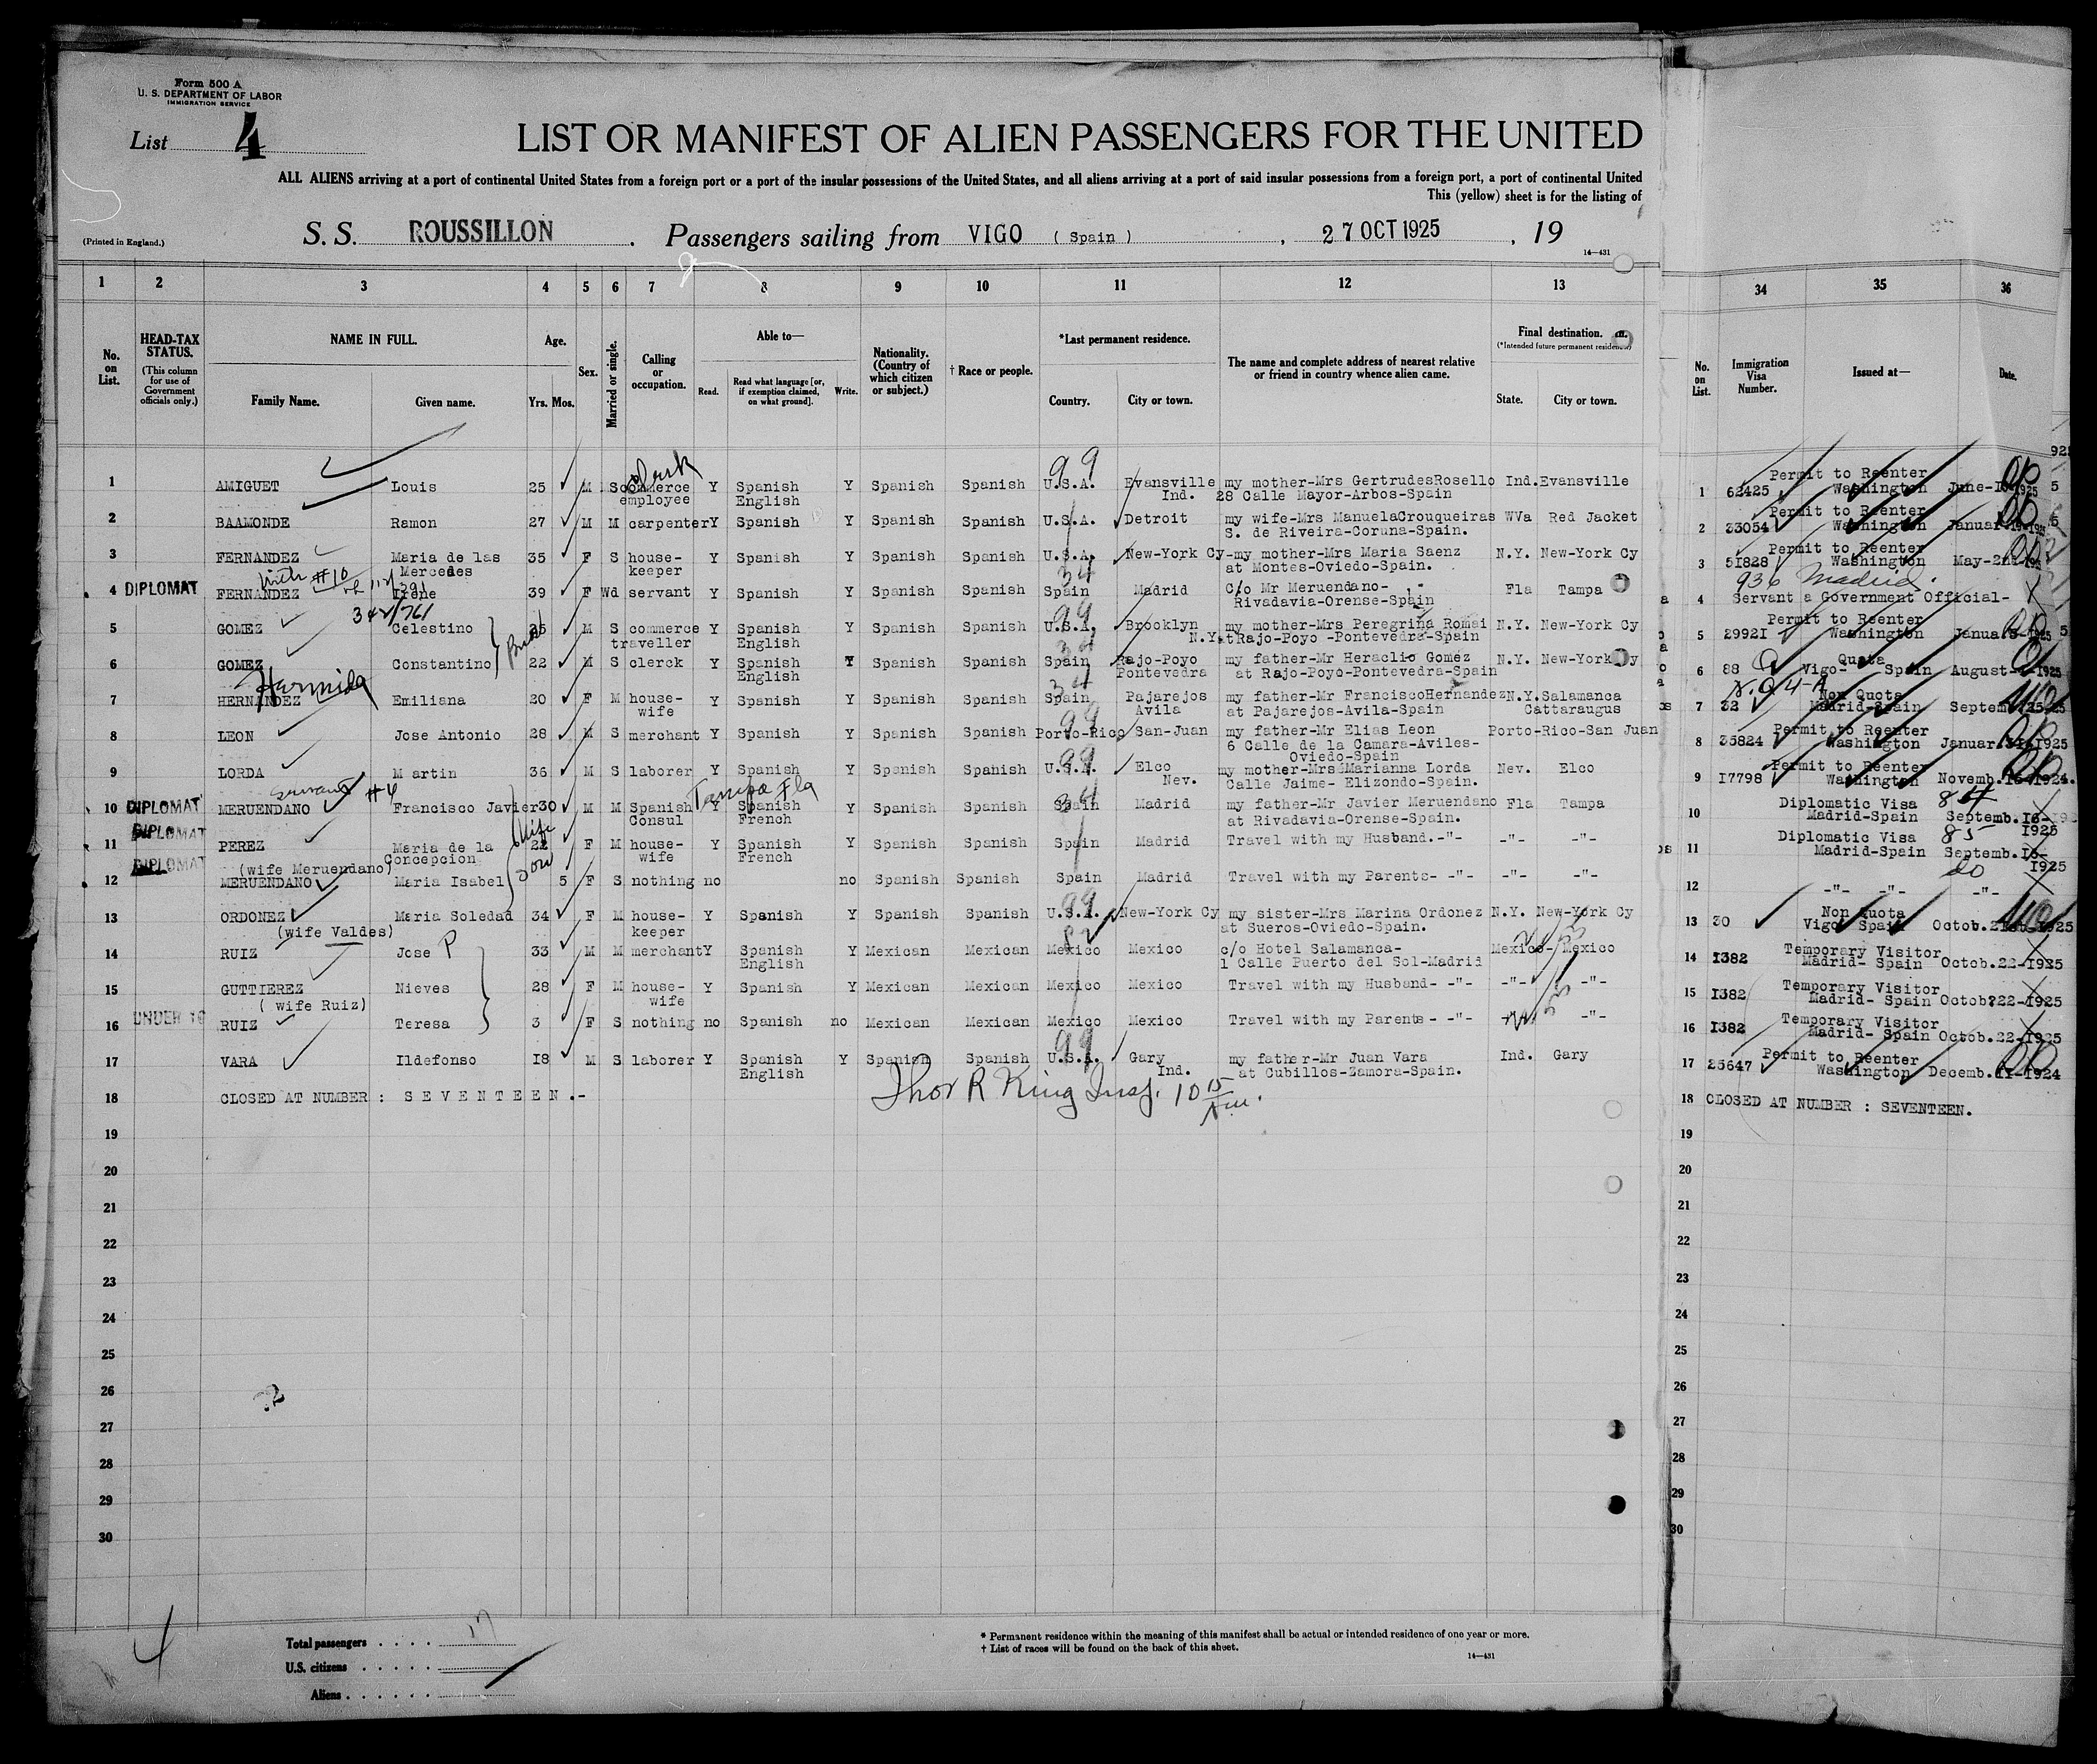 Form 500 A
U. S. DEPARTMENT OF LABOR
IMMIGRATION SERVICE
List 4
LIST OR MANIFEST OF ALIEN PASSENGERS FOR THE UNITED
ALL ALIENS arriving at a port of continental United States from a foreign port or a port of the insular possessions of the United States, and all aliens arriving at a port of said insular possessions from a foreign port, a port of continental United
This (yellow) sheet is for the listing of
(Printed in England.)
S. S. ROUSSILLON . Passengers sailing from VIGO ( Spain ) , 27 OCT 1925 , 19
14—431
1 2 3 4 5 6 7 8 9 10 11 12 13 34 35 36
No. on List.
HEAD-TAX STATUS.
(This column for use of Government officials only.)
NAME IN FULL.
Family Name. Given name.
Age.
Yrs. Mos.
Sex.
Married or single.
Calling or occupation.
Able to—
Read. Read what language [or, if exemption claimed, on what ground]. Write.
Nationality. (Country of which citizen or subject.)
† Race or people.
*Last permanent residence.
Country. City or town.
The name and complete address of nearest relative or friend in country whence alien came.
Final destination.
(*Intended future permanent residence.)
State. City or town.
No. on List.
Immigration Visa Number.
Issued at—
Date.
clerk 99
1 AMIGUET Louis 25 M S commerce Y Spanish Y Spanish Spanish U.S.A. Evansville my mother-Mrs GertrudesRosello Ind. Evansville 1 62425 Permit to Reenter
employee English Ind. 28 Calle Mayor-Arbos-Spain Washington June- 1925
2 BAAMONDE Ramon 27 M M carpenter Y Spanish Y Spanish Spanish U.S.A. Detroit my wife-Mrs ManuelaCrouqueiras WVa Red Jacket 2 33054 Permit to Reenter
S. de Riveira-Coruna-Spain. Washington Januar
3 FERNANDEZ Maria de las 35 F S house- Y Spanish Y Spanish Spanish U.S.A. New-York Cy- my mother-Mrs Maria Saenz N.Y. New-York Cy 3 51828 Permit to Reenter
Mercedes keeper at Montes-Oviedo-Spain. Washington May-2nd
with #10 34 936 Madrid.
4 DIPLOMAT FERNANDEZ Irene 39 F Wd servant Y Spanish Y Spanish Spanish Spain Madrid C/o Mr Meruendano- Fla Tampa 4 Servant a Government Official-
Rivadavia-Orense-Spain
342/761 99
5 GOMEZ Celestino 25 M S commerce Y Spanish Y Spanish Spanish U.S.A. Brooklyn my mother-Mrs Peregrina Romai N.Y. New-York Cy 5 29921 Permit to Reenter
traveller English N.Y. at Rajo-Poyo -Pontevedra-Spain Washington Janua 1925
34
6 GOMEZ Constantino 22 M S clerck Y Spanish Y Spanish Spanish Spain Rajo-Poyo my father-Mr Heraclio Gomez N.Y. New-York Cy 6 88 Q Quota
English Pontevedra at Rajo-Poyo-Pontevedra-Spain Vigo- Spain August- 1925
Hermida 34 N.Q 4-A
7 HERNANDEZ Emiliana 20 F M house- Y Spanish Y Spanish Spanish Spain Pajarejos my father-Mr FranciscoHernandez N.Y. Salamanca 7 32 Non Quota
wife Avila at Pajarejos-Avila-Spain Cattaraugus Madrid-Spain Septem
99
8 LEON Jose Antonio 28 M S merchant Y Spanish Y Spanish Spanish Porto-Rico San-Juan my father-Mr Elias Leon Porto-Rico-San Juan 8 35824 Permit to Reenter
6 Calle de la Camara-Aviles- Washington Januar 1925
Oviedo-Spain
99
9 LORDA Martin 36 M S laborer Y Spanish Y Spanish Spanish U.S.A. Elco my mother-Mrs Marianna Lorda Nev. Elco 9 17798 Permit to Reenter
Nev. Calle Jaime- Elizondo-Spain. Washington Novemb. 1924.
servant #4 Tampa Fla 34
10 DIPLOMAT MERUENDANO Francisco Javier 30 M M Spanish Y Spanish Y Spanish Spanish Spain Madrid my father-Mr Javier Meruendano Fla Tampa 10 Diplomatic Visa 84
Consul French at Rivadavia-Orense-Spain. Madrid-Spain Septemb.16- 1925
wife
11 DIPLOMAT PEREZ Maria de la 22 F M house- Y Spanish Y Spanish Spanish Spain Madrid Travel with my Husband.-"- -"- -"- 11 Diplomatic Visa 85
(wife Meruendano) Concepcion wife French Madrid-Spain Septemb.16- 1925
12 DIPLOMAT MERUENDANO Maria Isabel 5 F S nothing no no Spanish Spanish Spain Madrid Travel with my Parents- -"- -"- -"- 12 -"- -"- do -"-
99
13 ORDONEZ Maria Soledad 34 F M house- Y Spanish Y Spanish Spanish U.S.A. New-York Cy my sister-Mrs Marina Ordonez N.Y. New-York Cy 13 30 Non Quota
(wife Valdes) keeper at Sueros-Oviedo-Spain. Vigo- Spain Octob.21st-1925
14 RUIZ Jose P 33 M M merchant Y Spanish Y Mexican Mexican Mexico Mexico c/o Hotel Salamanca- Mexico- Mexico 14 1382 Temporary Visitor
English 1 Calle Puerto del Sol-Madrid Madrid- Spain Octob.22-1925
15 GUTTIEREZ Nieves 28 F M house- Y Spanish Y Mexican Mexican Mexico Mexico Travel with my Husband- -"- -"- -"- 15 1382 Temporary Visitor
( wife Ruiz) wife Madrid- Spain Octob.22-1925
16 UNDER 16 RUIZ Teresa 3 F S nothing no Spanish no Mexican Mexican Mexico Mexico Travel with my Parents - -"- -"- 16 1382 Temporary Visitor
Madrid- Spain Octob.22-1925
99
17 VARA Ildefonso 18 M S laborer Y Spanish Y Spanish Spanish U.S.A. Gary my father-Mr Juan Vara Ind. Gary 17 25647 Permit to Reenter
English Ind. at Cubillos-Zamora-Spain. Washington Decemb.11-1924
18 CLOSED AT NUMBER : S E V E N T E E N .- Thor R King Insp. 10 15 Am. 18 CLOSED AT NUMBER : SEVENTEEN.
19 19
20 20
21 21
22 22
23 23
24 24
25 25
26 26
27 27
28 28
29 29
30 30
4
Total passengers . . . . 17
U.S. citizens . . . . .
Aliens . . . . . .
* Permanent residence within the meaning of this manifest shall be actual or intended residence of one year or more.
† List of races will be found on the back of this sheet.
14—431